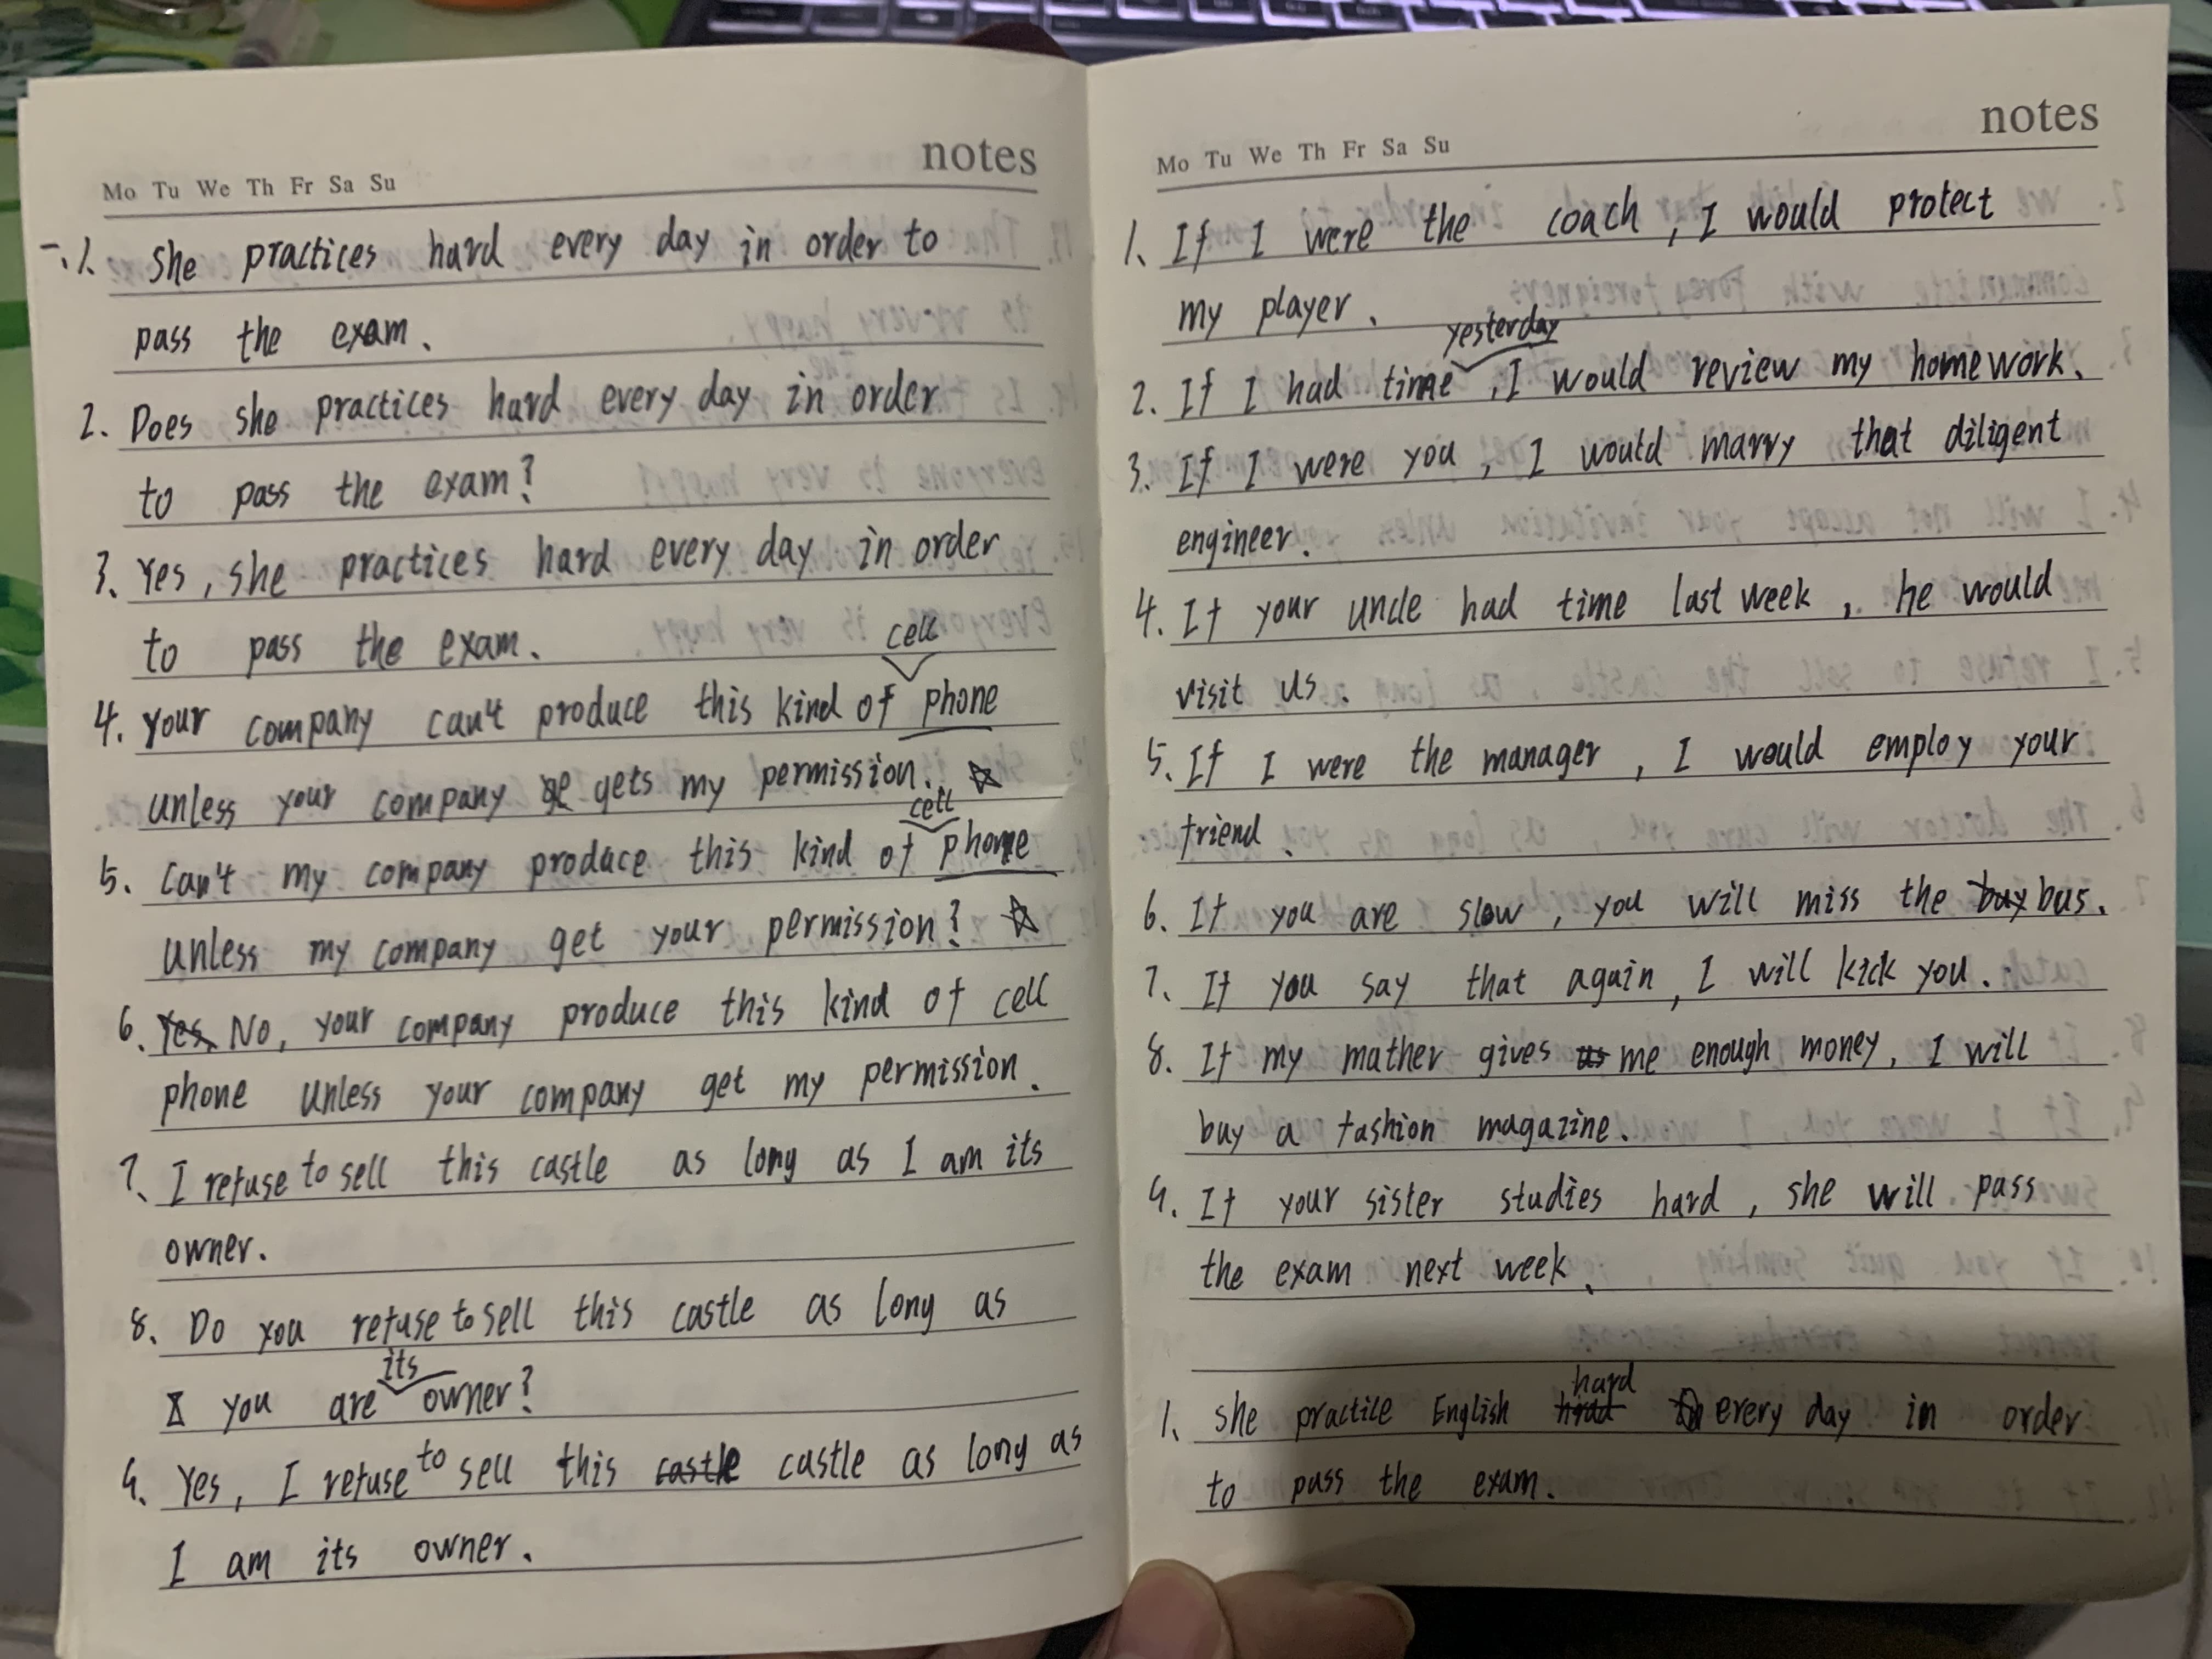 notes
Mo Tu We Th Fr Sa Su
一.1. She practices hard every day in order to
pass the exam.
2. Does she practices hard every day in order
to pass the exam?
3. Yes, she practices hard every day in order
to pass the exam.
cell
4. Your company can't produce this kind of phone
unless your company gets my permission. ☆
cell
5. Can't my company produce this kind of phone
unless my company get your permission? ☆
6. Yes No, your company produce this kind of cell
phone unless your company get my permission.
7. I refuse to sell this castle as long as I am its
owner.
8. Do you refuse to sell this castle as long as
its
you are owner?
9. Yes, I refuse to sell this castle castle as long as
I am its owner.
notes
Mo Tu We Th Fr Sa Su
1. If I were the coach, I would protect
my player.
yesterday
2. If I had time, I would review my homework.
3. If I were you, I would marry that diligent
engineer.
4. If your uncle had time last week, he would
visit us.
5. If I were the manager, I would employ your
friend.
6. If you are slow, you will miss the buy bus.
7. If you say that again, I will kick you.
8. If my mather gives us me enough money, I will
buy a fashion magazine.
9. If your sister studies hard, she will pass
the exam next week.
hard
1. she practice English every day in order
to pass the exam.